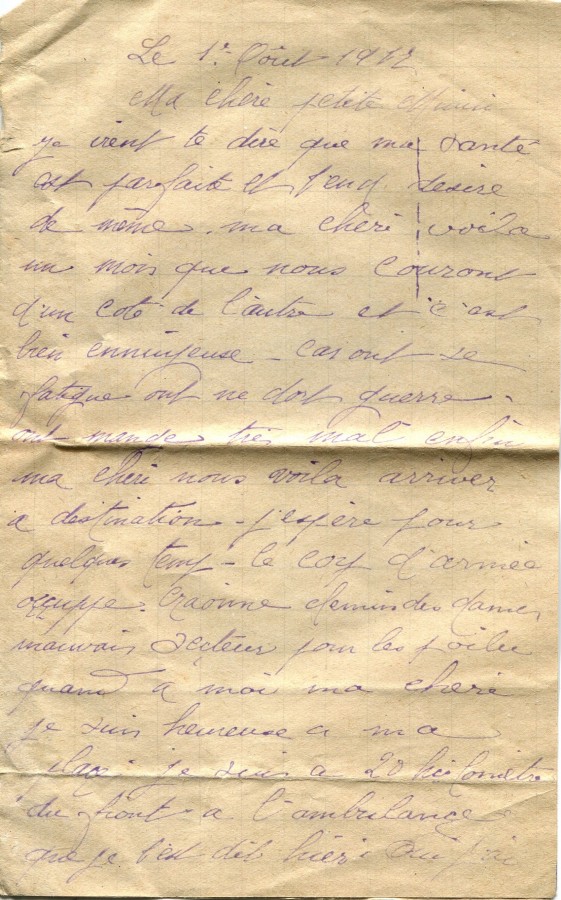 Le 1er Aôut 1917
Ma chère petite Mimi
je vient te dire que ma santé
est parfaite et t'en desire
de même. ma chèri voila
un mois que nous couront
d'un coté de l'autre et c'est
bien ennuiyeuse - car ont se
fatigue ont ne dort guerre.
ont mande très mal enfin
ma chèri nous voila arriver
a destination - j'espère pour
quelques temp - le corp d'armée
occuppe. Craonne chemin des dames
mauvais secteur pour les poilu
quand a moi ma chèri
je suis heureuse a ma
plaçe. je suis a 20 kilomètre
du front a l'ambulance
que je t'est dit hièr.